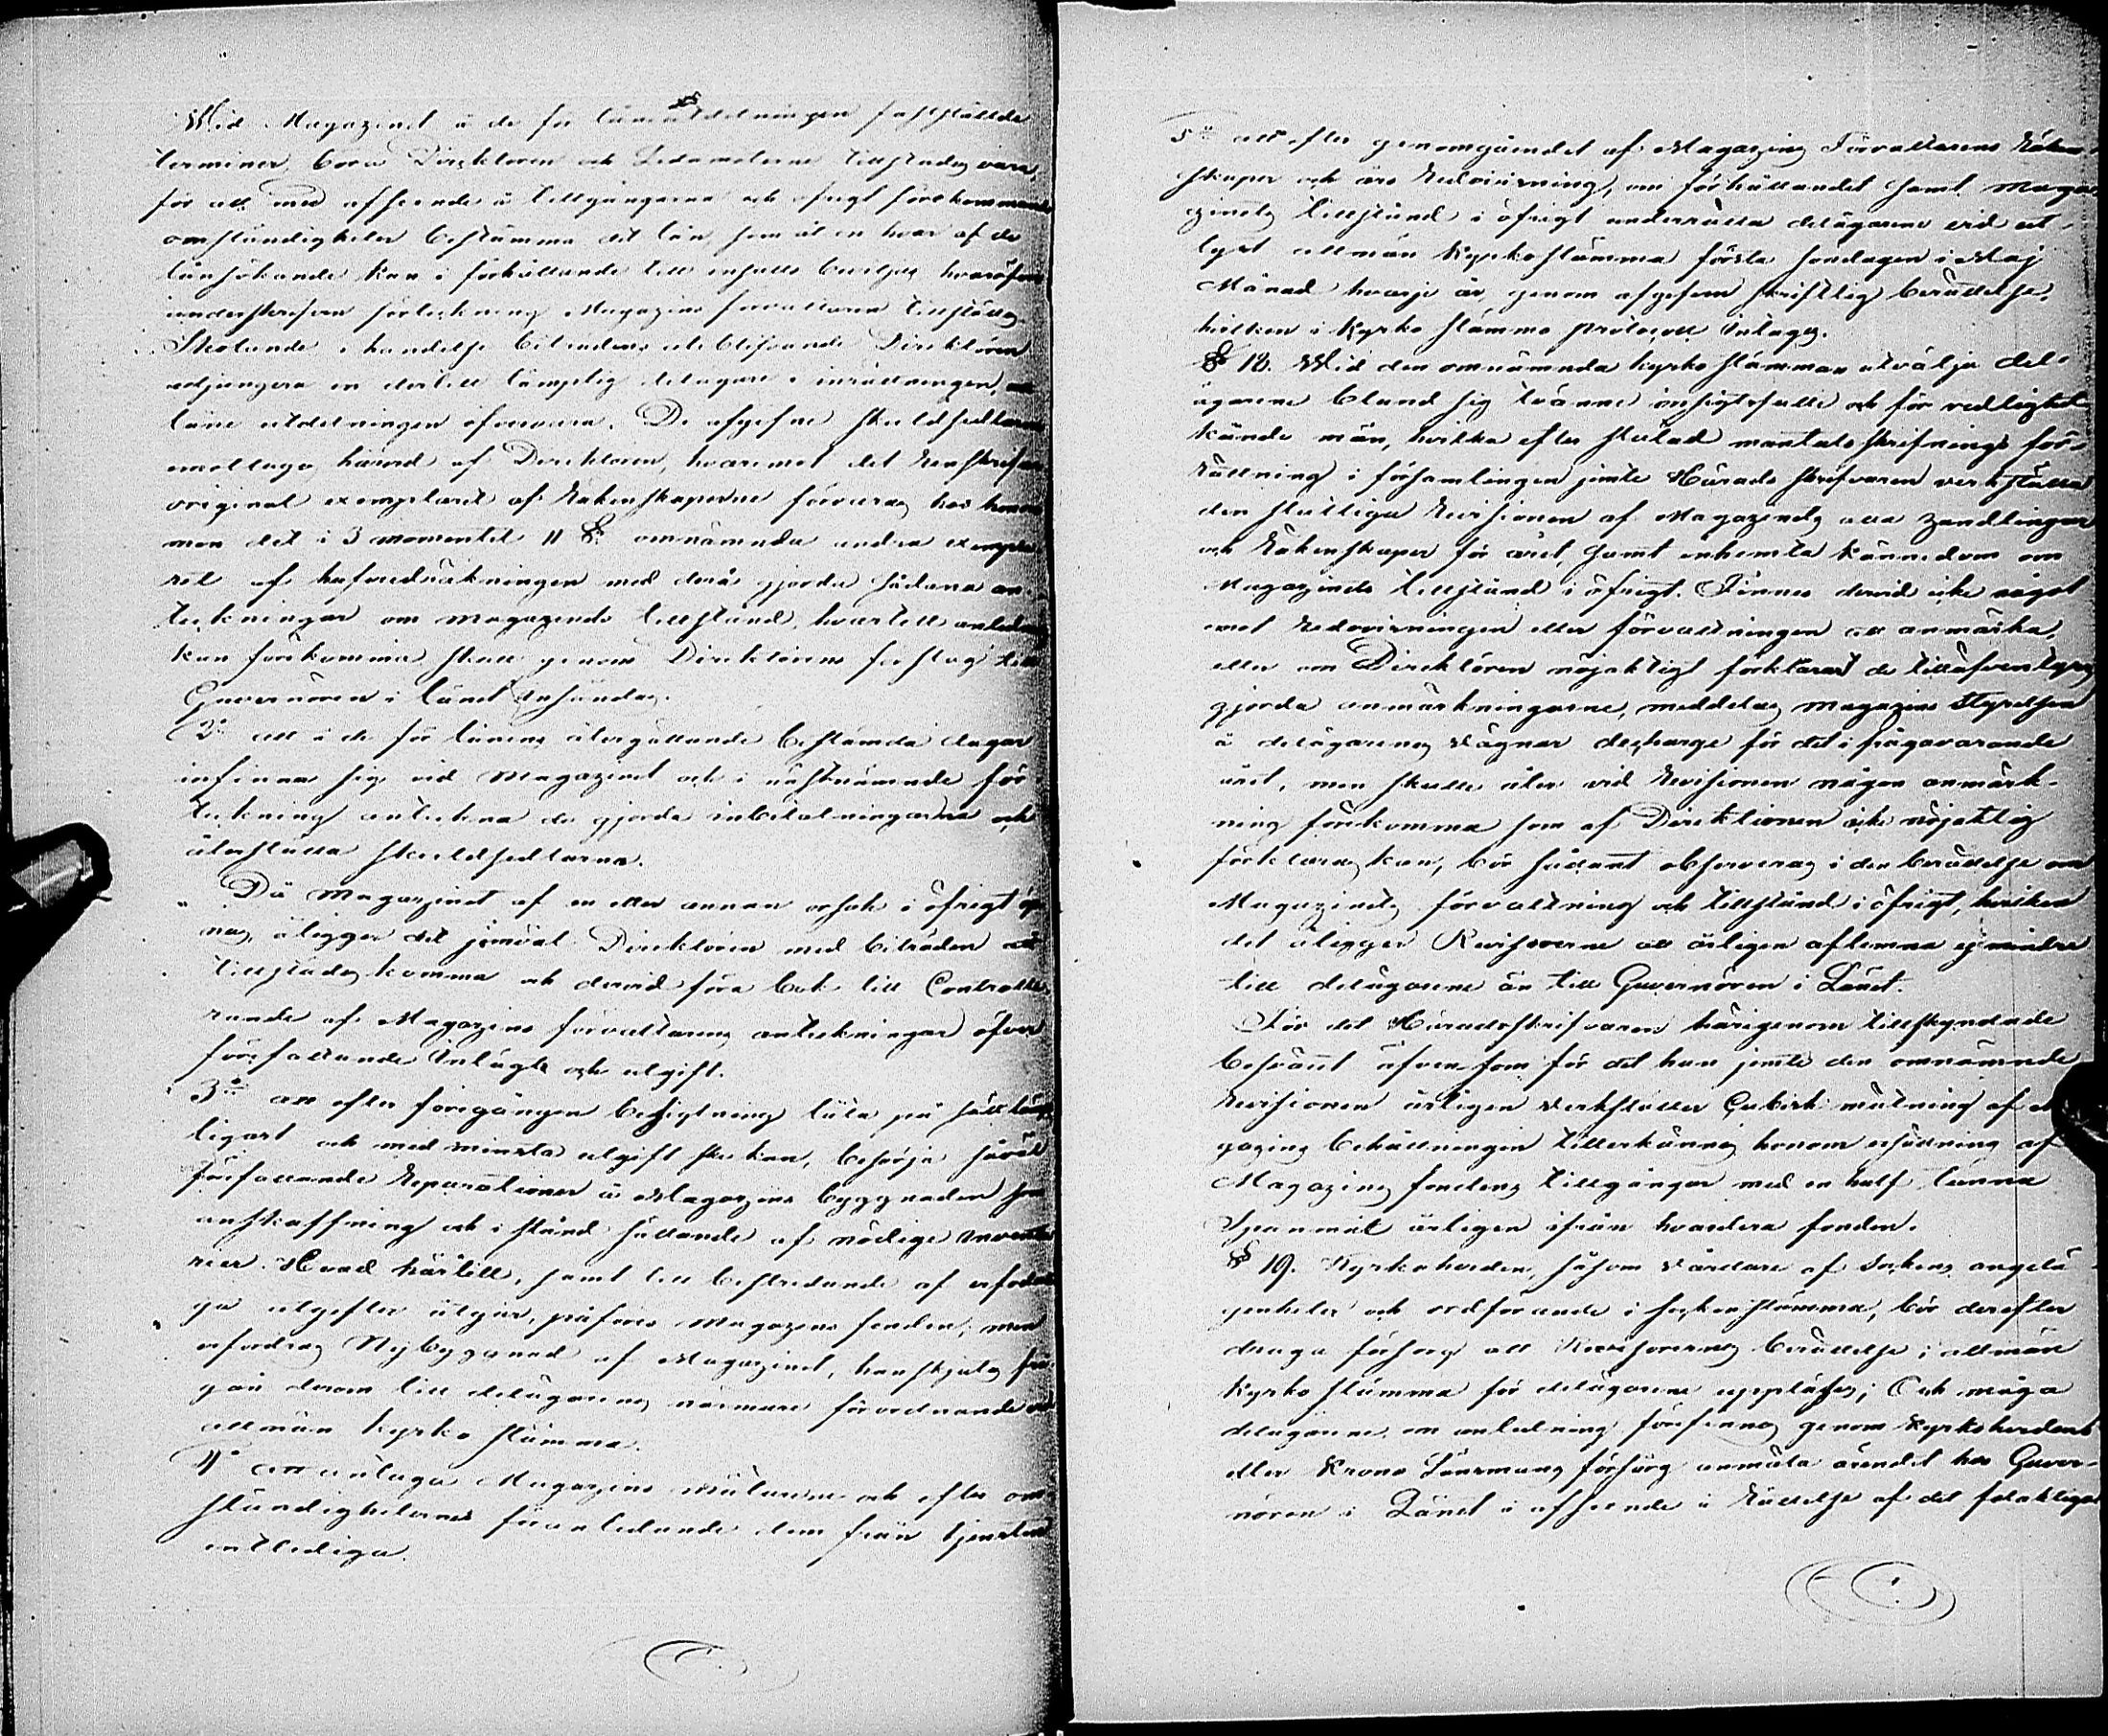 Wid Magazinet å de för låneutdelningen fastställde
terminer böra Direktoren och Ledamöterne tillstädes vara,
för att med afseende å tillgångarne och öfrigt förekommande
omständigheter bestämma det lån, som åt en hvar af de
lånsökande kan i förhållande till insatts beviljas, hvaröfver
underskrifven förteckning Magazins förvaltaren tillställes.
Skolande i händelse biträdens uteblifvande Direktören
adjungera en dertill lämplig delägare i inrättningen, att
låne utdelningen öfvervara. De afgifne skuldsedlarne
emottagas härvid af Direktoren, hvaremot det renskrifna
original exemplaret af Räkenskaperne förvaras hos honom
men det i 3 momentet 11 §. omnämnda andra exempla
ret af hufvudräkningen med derå gjorda sådana an-
teckningar om magazinets tillstånd, hvartill anledning
kan förekomma skall genom Direktörens försorg till
Guvernören i länet insändas.
2o att å de för lånens återgäldande bestämda dagar
infinna sig vid Magazinet och i nästnämnde för
teckning anteckna de gjorda inbetalningarna och
återställa skuldsedlarna.
Då Magazinet af en eller annan orsak i öfrigt öp
nas, åligger det jemväl Direktören med biträden att
tillstädes komma och dervid föra bok till Controlle
rande af Magazins förvaltarens anteckningar öfver
förefallande inlagte och utgift.
3o att efter föregången besigtning låta på sätt lämp
ligast och med minsta utgift ske kan, besörja såväl
förefallande Reparationer å Magazins byggnaden som
anskaffning och i stånd hållande af nödige inventa
rier. Hvad härtill, samt till bestridande af erforderli
ga utgifter åtgår, påföres Magazins fonden; men
erfordras Nybyggnad af Magazinet, hänskjutes frå
gan derom till delägarenes närmare förordnande vid
allmän kyrko stämma.
4o att antaga Magazins mätarene och efter om
ständigheternes föranledande dem från tjensten
entlediga.
5o att efter genomgåendet af Magazins Förvaltarens Räken-
skaper och års Redovisning, om förhållandet samt Maga-
zinets tillstånd i öfrigt underrätta delägarene vid ut-
lyst allmän Kyrkostämma första söndagen i Maj
Månad hvarje år, genom afgifven skriftlig berättelse,
hvilken i Kyrko stämmo protocoll intages.
§ 18. Wid den omnämnda kyrko stämman utvälja del-
ägarene bland sig tvänne insigtsfulle och för redlighet
kände män, hvilka efter slutad mantals skrifnings för-
rättning i församlingen jemte Härads skrifvaren verkställa
den slutliga Revisionen af Magazinets alla handlingar
och Räkenskaper för året, samt inhemta kännedom om
Magazinets tillstånd i öfrigt. Finnes dervid icke något
emot redovisningen eller förvaltningen att anmärka,
eller om Direktören nöjaktigt förklarat de tilläfventyrs
gjorda anmärkningarne, meddelas magazins Styrelsen
å delägarenes vägnar decharge för det i frågavarande
året, men skulle åter vid Revisionen någon anmärk-
ning förekomma som af Direktionen icke nöjaktig
förklaras kan, bör sådant observeras i den berättelse om
Magazinets förvaltning och tillstånd i öfrigt, hvilken
det åligger Revisorerne att årligen aflemna ej mindre
till delägarene än till Guvernören i Länet.
För det Häradsskrifvaren härigenom tillskyndade
besvärt äfvensom för det han jemte den omnämnde
Revisionen årligen verkställer Cubisk mätning af ma
gazins behållningen tillerkännes honom ersättning af
Magazins fondens tillgångar med en half tunna
Spanmål årligen ifrån hvardera fonden.
§ 19. Kyrkoherden, såsom vårdare af Sockens angelä-
genheter och ordförande i sockenstämma, bör derefter
draga försorg att Revisorernes berättelse i allmän
kyrko stämma för delägarene uppläses; Och måga
delägarene, om anledning förefinnes genom Kyrkoherdens
eller Krono Länsmans försorg anmäla ärendet hos Guver-
nören i Länet i afseende å rättelse af det felaktiga